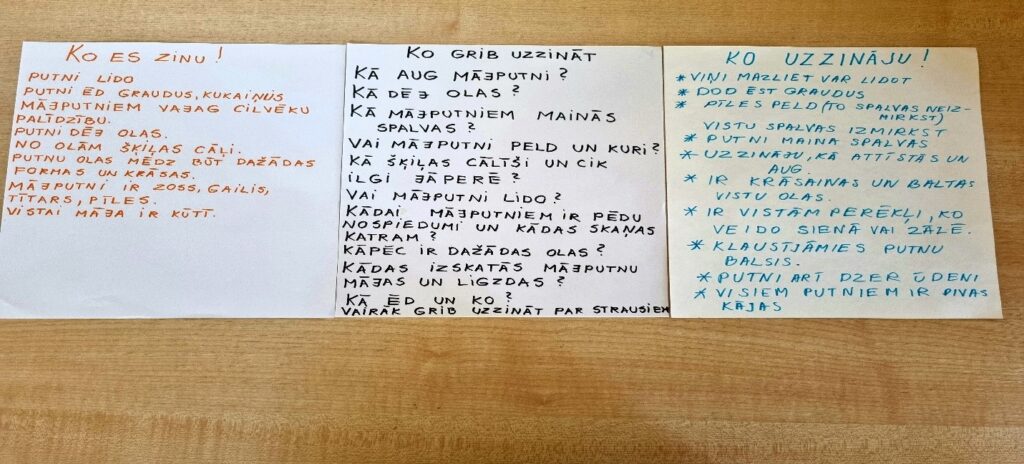 KO ES ZINU!
PUTNI LIDO
PUTNI ĒD GRAUDUS, KUKAIŅUS
MĀJPUTNIEM VAJAG CILVĒKU
PALĪDZĪBU.
PUTNI DĒJ OLAS.
NO OLĀM ŠĶIĻAS CĀĻI.
PUTNU OLAS MĒDZ BŪT DAŽĀDAS
FORMAS UN KRĀSAS.
MĀJPUTNI IR ZOSS, GAILIS,
TĪTARS, PĪLES.
VISTAI MĀJA IR KŪTĪ.
KO GRIB UZZINĀT
KĀ AUG MĀJPUTNI?
KĀ DĒJ OLAS?
KĀ MĀJPUTNIEM MAINĀS
SPALVAS?
VAI MĀJPUTNI PELD UN KURI?
KĀ ŠĶIĻAS CĀLĪŠI UN CIK
ILGI JĀPERĒ?
VAI MĀJPUTNI LIDO?
KĀDAI MĀJPUTNIEM IR PĒDU
NOSPIEDUMI UN KĀDAS SKAŅAS
KATRAM?
KĀPĒC IR DAŽĀDAS OLAS?
KĀDAS IZSKATĀS MĀJPUTNU
MĀJAS UN LIGZDAS?
KĀ ĒD UN KO?
VAIRĀK GRIB UZZINĀT PAR STRAUSIEM
KO UZZINĀJU!
* VIŅI MAZLIET VAR LIDOT
* DOD ĒST GRAUDUS
* PĪLES PELD (TO SPALVAS NEIZ-
MIRKST)
VISTU SPALVAS IZMIRKST
* PUTNI MAINA SPALVAS
* UZZINĀJU, KĀ ATTĪSTĀS UN
AUG.
* IR KRĀSAINAS UN BALTAS
VISTU OLAS.
* IR VISTĀM PERĒKĻI, KO
VEIDO SIENĀ VAI ZĀLĒ.
* KLAUSĪJĀMIES PUTNU
BALSIS.
* PUTNI ARĪ DZER ŪDENI
* VISIEM PUTNIEM IR DIVAS
KĀJAS